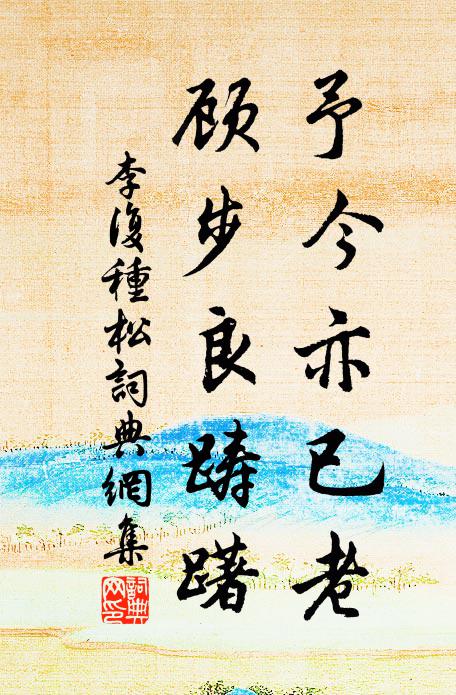 予今亦已老
顾步良踌躇
李復種松詞典網集
詞典網印